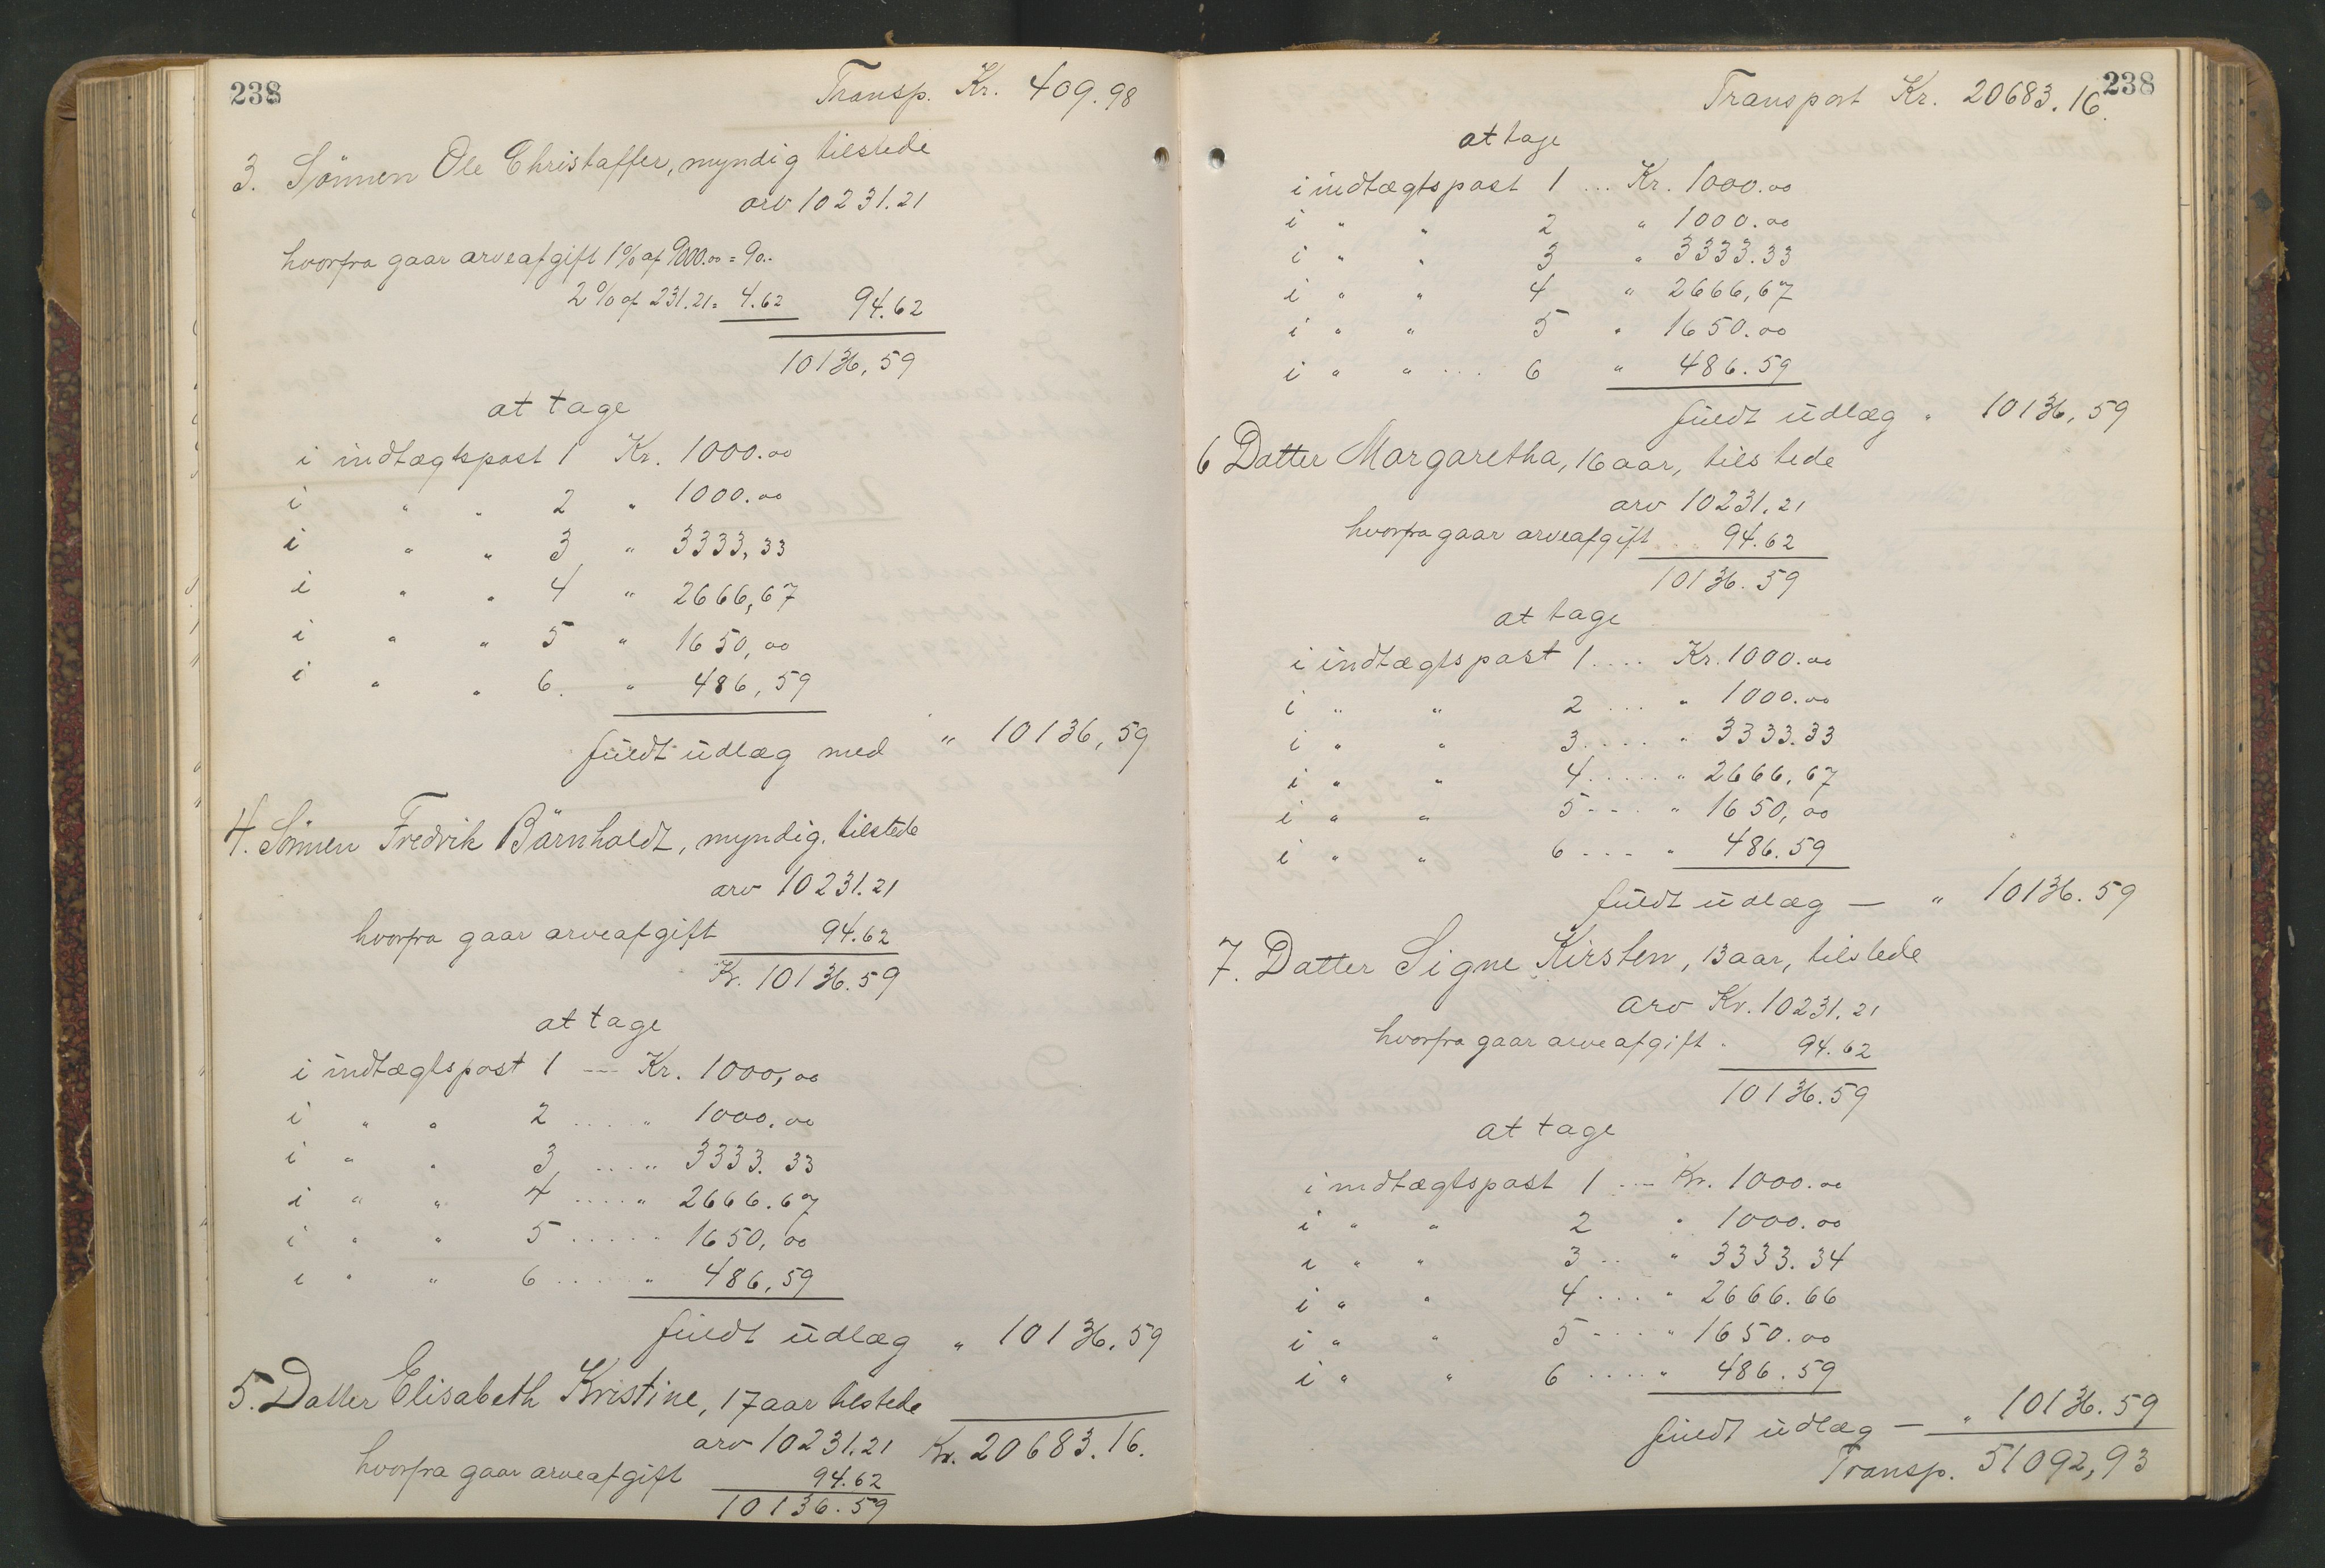 238
Transp. Kr. 409.98
3. Sönnen Ole Christaffer, myndig tilstede
arv 10231.21
hvorfra gaar arveafgift 1% af 9000.00 = 90..
2% af 231.21 = 4.62 94.62
10136,59
at tage
i indtægtspost 1 Kr. 1000.00
i " " 2 " 1000.00
i " " 3 " 3333,33
i " " 4 " 2666,67
i " " 5 " 1650,00
i " " 6. " 486,59
fuldt udlæg med " 10136,59
4. Sönnen Fredrik Bärnholdt, myndig. tilstede
arv 10231.21
hvorfra gaar arveafgift 94.62
Kr. 10136.59
at tage
i indtægtspost 1 --- Kr. 1000,00
i " " 2 .... " 1000.00
i " " 3 .... " 3333.33
i " " 4 .... " 2666.67
i " " 5 ..... " 1650,00
i " " 6 .... " 486,59
fuldt udlæg " 10136.59
5. Datter Elisabeth Kristine, 17 aar tilstede
arv 10231.21 Kr. 20683.16.
hvorfra gaar arveafgift 94.62
10136.59
238
Transport Kr. 20683.16.
at tage
i indtægtspost 1 ... Kr. 1000.00
i " " 2 " 1000.00
i " " 3 " 3333.33
i " " 4 " 2666,67
i " " 5 " 1650.00
i " " ... 6 " 486.59
fuldt udlæg " 10136,59
6 Datter Margaretha, 16 aar, tilstede
arv 10231.21
hvorfra gaar arveafgift 94.62
10136.59
at tage
i indtægtspost 1.... Kr. 1000.00
i " " 2 ... " 1000.00
i " " 3.... " 3333.33
i " " 4..... " 2666.67
i " " 5---- " 1650,00
i " " 6 --- " 486.59
fuldt udlæg — " 10136.59
7. Datter Signe Kirsten, 13 aar, tilstede
arv Kr. 10231.21
hvorfra gaar arveafgift . 94.62
10136.59
at tage
i indtægtspost 1 --- Kr. 1000.00
i " " 2 " 1000.00
i " " 3 .. " 3333.34
i " " 4 .... " 2666.66
i " " 5 ---- " 1650.00
i " " 6 .... " 486.59
fuldt udlæg — " 10136.59
Transp. 51092,93